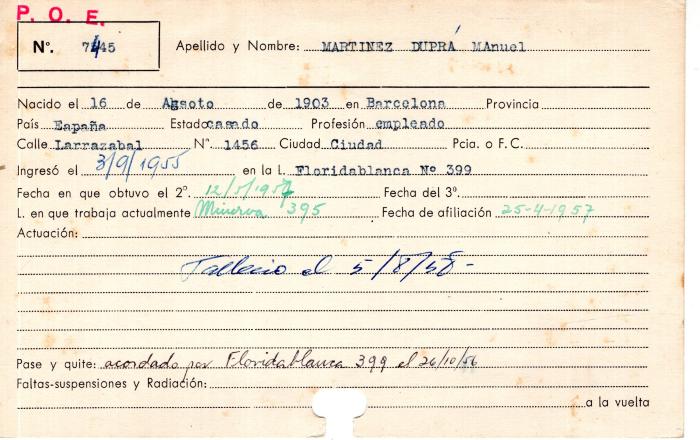 P. O. E.
N°. 7445 Apellido y Nombre: MARTINEZ DUPRÁ MAnuel
Nacido el 16 de Agsoto de 1903 en Barcelona Provincia
País España Estado casado Profesión empleado
Calle Larrazabal N°. 1456 Ciudad Ciudad Pcia. o F. C.
Ingresó el 3/9/1955 en la L. Floridablanca Nº 399
Fecha en que obtuvo el 2°. 12/5/1957 Fecha del 3°.
L. en que trabaja actualmente Minerva 395 Fecha de afiliación 25-4-1957
Actuación:
Fallecio el 5/8/58-
Pase y quite: acordado por Floridablanca 399 el 26/10/56
Faltas-suspensiones y Radiación:
a la vuelta